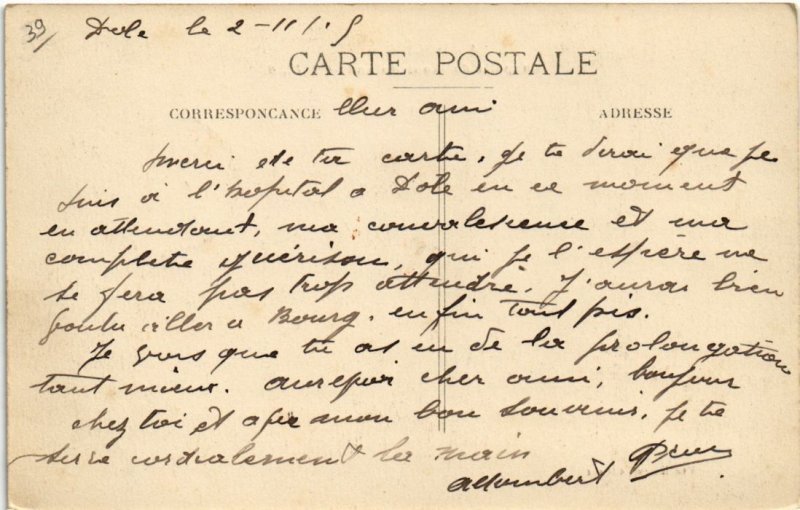 39/ Dole le 2-11/15
CARTE POSTALE
CORRESPONCANCE
ADRESSE
Cher ami
merci de ta carte, je te dirai que je
suis a l'hopital a Dole en ce moment
en attendant, ma convalescence et ma
complete guérison, qui je l'espère ne
se fera pas trop attendre. J'aurai bien
voulu aller a Bourg. enfin tant pis.
Je vois que tu as eu de la prolongation
tant mieux. aurevoir cher ami, bonjour
chez toi et a mon bon souvenir. je te
serre cordialement la main